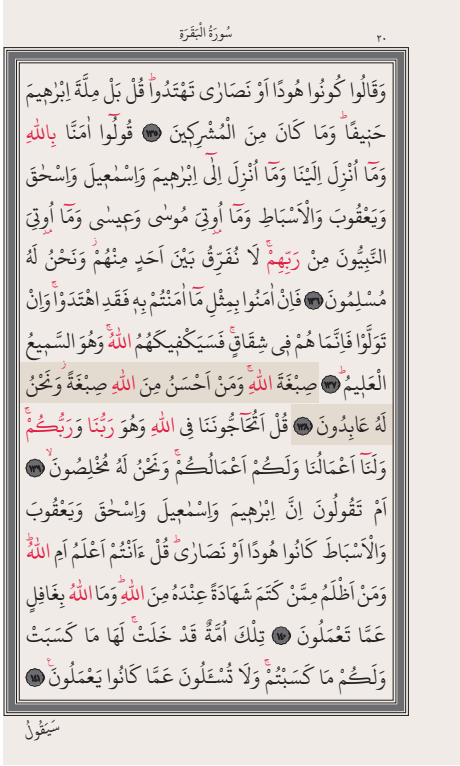 سُورَةُ الْبَقَرَةِ ٢٠
وَقَالُوا كُونُوا هُودًا اَوْ نَصَارٰى تَهْتَدُواۜ قُلْ بَلْ مِلَّةَ اِبْرٰه۪يمَ
حَن۪يفًاۜ وَمَا كَانَ مِنَ الْمُشْرِك۪ينَ ﴿١٣٥﴾ قُولُٓوا اٰمَنَّا بِاللّٰهِ
وَمَٓا اُنْزِلَ اِلَيْنَا وَمَٓا اُنْزِلَ اِلٰٓى اِبْرٰه۪يمَ وَاِسْمٰع۪يلَ وَاِسْحٰقَ
وَيَعْقُوبَ وَالْاَسْبَاطِ وَمَٓا اُو۫تِيَ مُوسٰى وَع۪يسٰى وَمَٓا اُو۫تِيَ
النَّبِيُّونَ مِنْ رَبِّهِمْۚ لَا نُفَرِّقُ بَيْنَ اَحَدٍ مِنْهُمْۘ وَنَحْنُ لَهُ
مُسْلِمُونَ ﴿١٣٦﴾ فَاِنْ اٰمَنُوا بِمِثْلِ مَٓا اٰمَنْتُمْ بِه۪ فَقَدِ اهْتَدَوْاۚ وَاِنْ
تَوَلَّوْا فَاِنَّمَا هُمْ ف۪ي شِقَاقٍۚ فَسَيَكْف۪يكَهُمُ اللّٰهُۚ وَهُوَ السَّم۪يعُ
الْعَل۪يمُۜ ﴿١٣٧﴾ صِبْغَةَ اللّٰهِۚ وَمَنْ اَحْسَنُ مِنَ اللّٰهِ صِبْغَةًۘ وَنَحْنُ
لَهُ عَابِدُونَ ﴿١٣٨﴾ قُلْ اَتُحَٓاجُّونَنَا فِي اللّٰهِ وَهُوَ رَبُّنَا وَرَبُّكُمْۚ
وَلَنَٓا اَعْمَالُنَا وَلَكُمْ اَعْمَالُكُمْۚ وَنَحْنُ لَهُ مُخْلِصُونَۙ ﴿١٣٩﴾
اَمْ تَقُولُونَ اِنَّ اِبْرٰه۪يمَ وَاِسْمٰع۪يلَ وَاِسْحٰقَ وَيَعْقُوبَ
وَالْاَسْبَاطَ كَانُوا هُودًا اَوْ نَصَارٰىۜ قُلْ ءَاَنْتُمْ اَعْلَمُ اَمِ اللّٰهُۜ
وَمَنْ اَظْلَمُ مِمَّنْ كَتَمَ شَهَادَةً عِنْدَهُ مِنَ اللّٰهِۜ وَمَا اللّٰهُ بِغَافِلٍ
عَمَّا تَعْمَلُونَ ﴿١٤٠﴾ تِلْكَ اُمَّةٌ قَدْ خَلَتْۚ لَهَا مَا كَسَبَتْ
وَلَكُمْ مَا كَسَبْتُمْۚ وَلَا تُسْـَٔلُونَ عَمَّا كَانُوا يَعْمَلُونَ۟ ﴿١٤١﴾
سَيَقُولُ